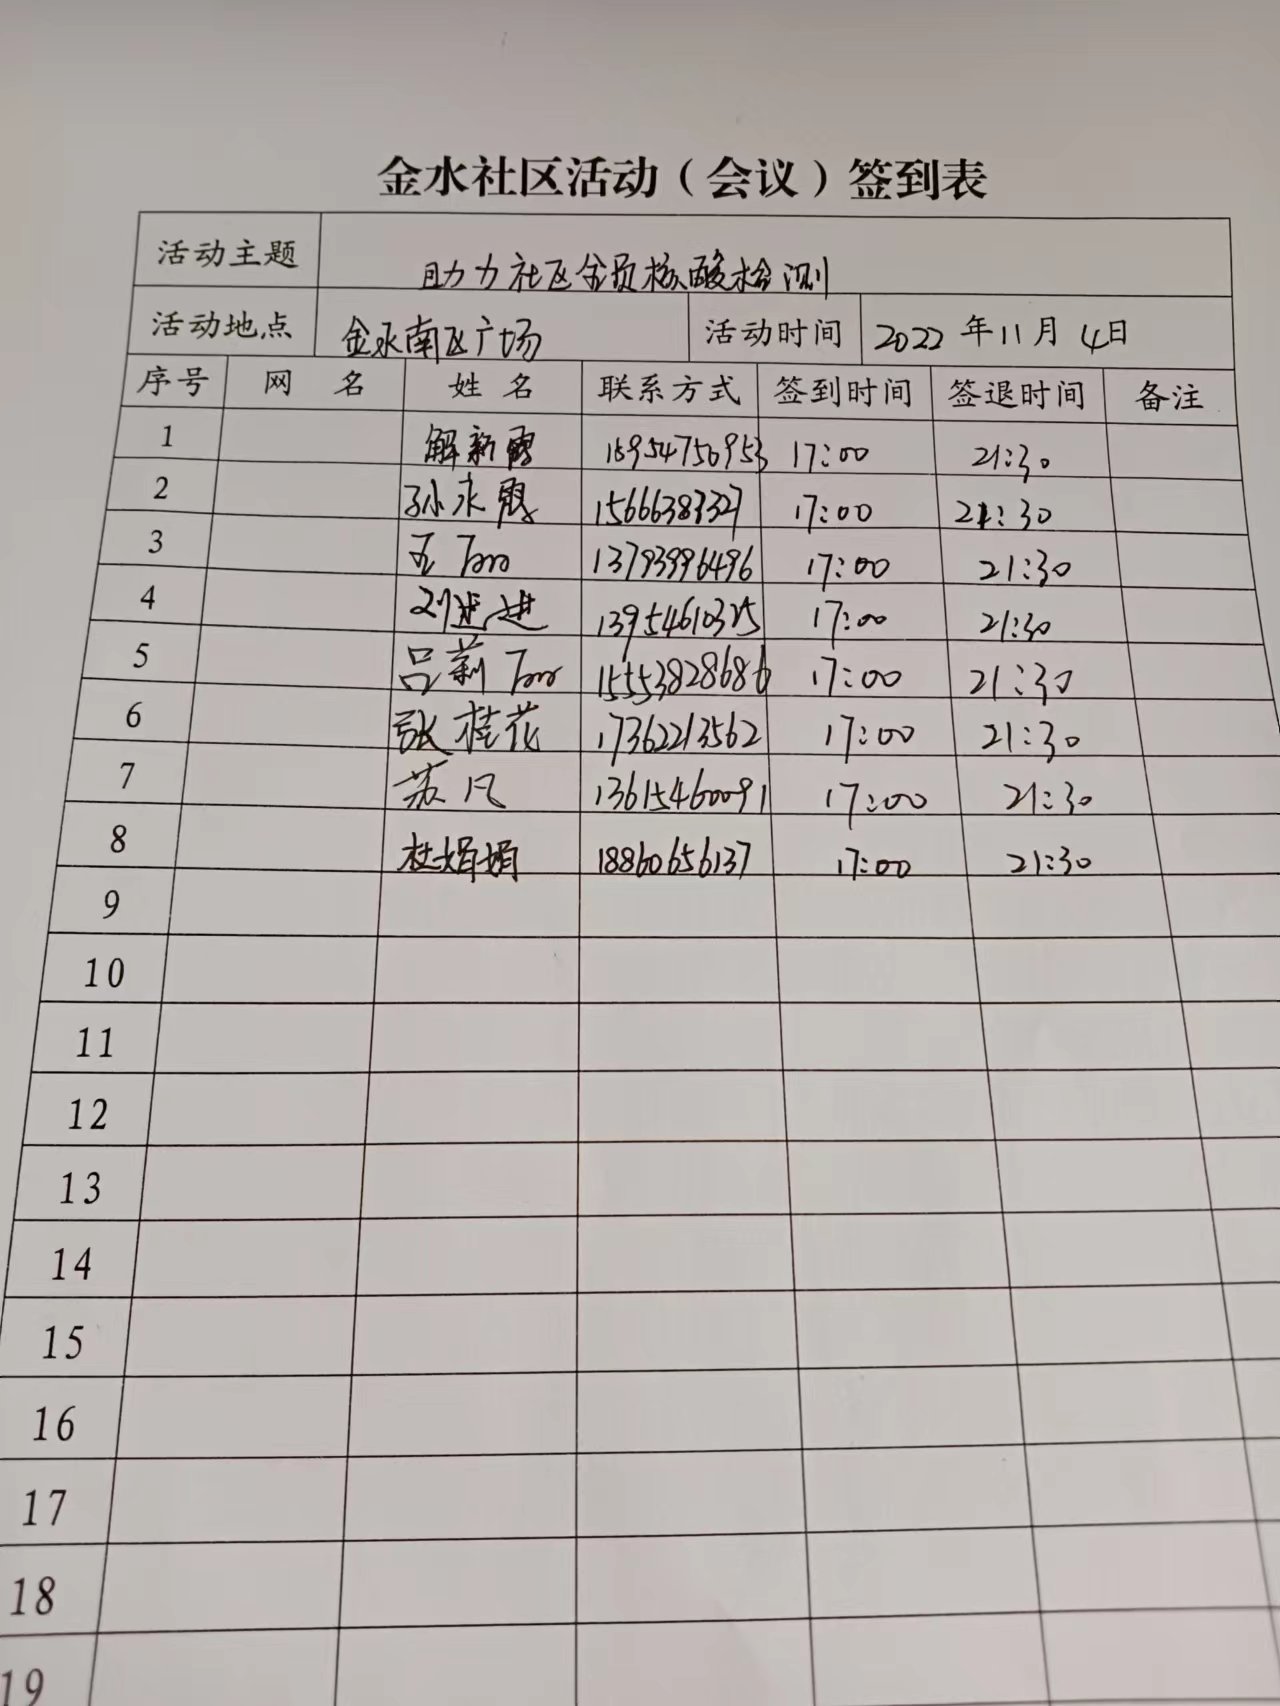 金水社区活动（会议）签到表
活动主题 助力社区全员核酸检测
活动地点 金水南区广场 活动时间 2022年11月4日
序号 网名 姓名 联系方式 签到时间 签退时间 备注
1 解新霞 17:00 21:30
2 孙永霞 15666383327 17:00 21:30
3 13793996496 17:00 21:30
4 刘进进 17:00 21:30
5 吕莉丽 15553828686 17:00 21:30
6 张桂花 17362213562 17:00 21:30
7 苏凡 13615460091 17:00 21:30
8 杜娟娟 18860656137 17:00 21:30
9
10
11
12
13
14
15
16
17
18
19